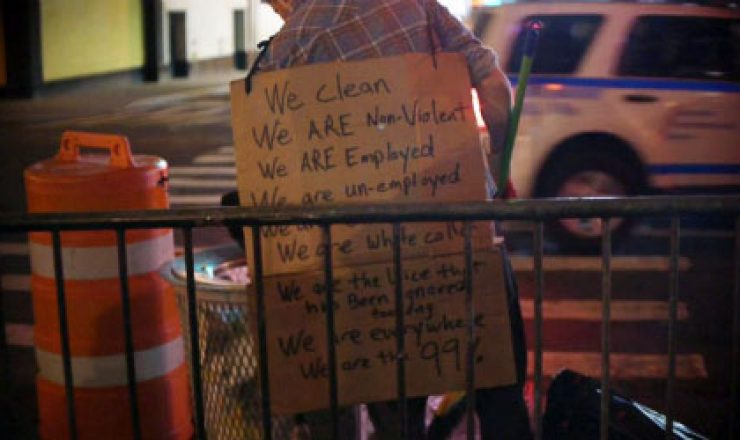 We clean
We ARE Non-Violent
We ARE Employed
We are un-employed
We are
We are White coll
We are the Voice that
has Been ignored
too long
We are everywhere
We are the 99%